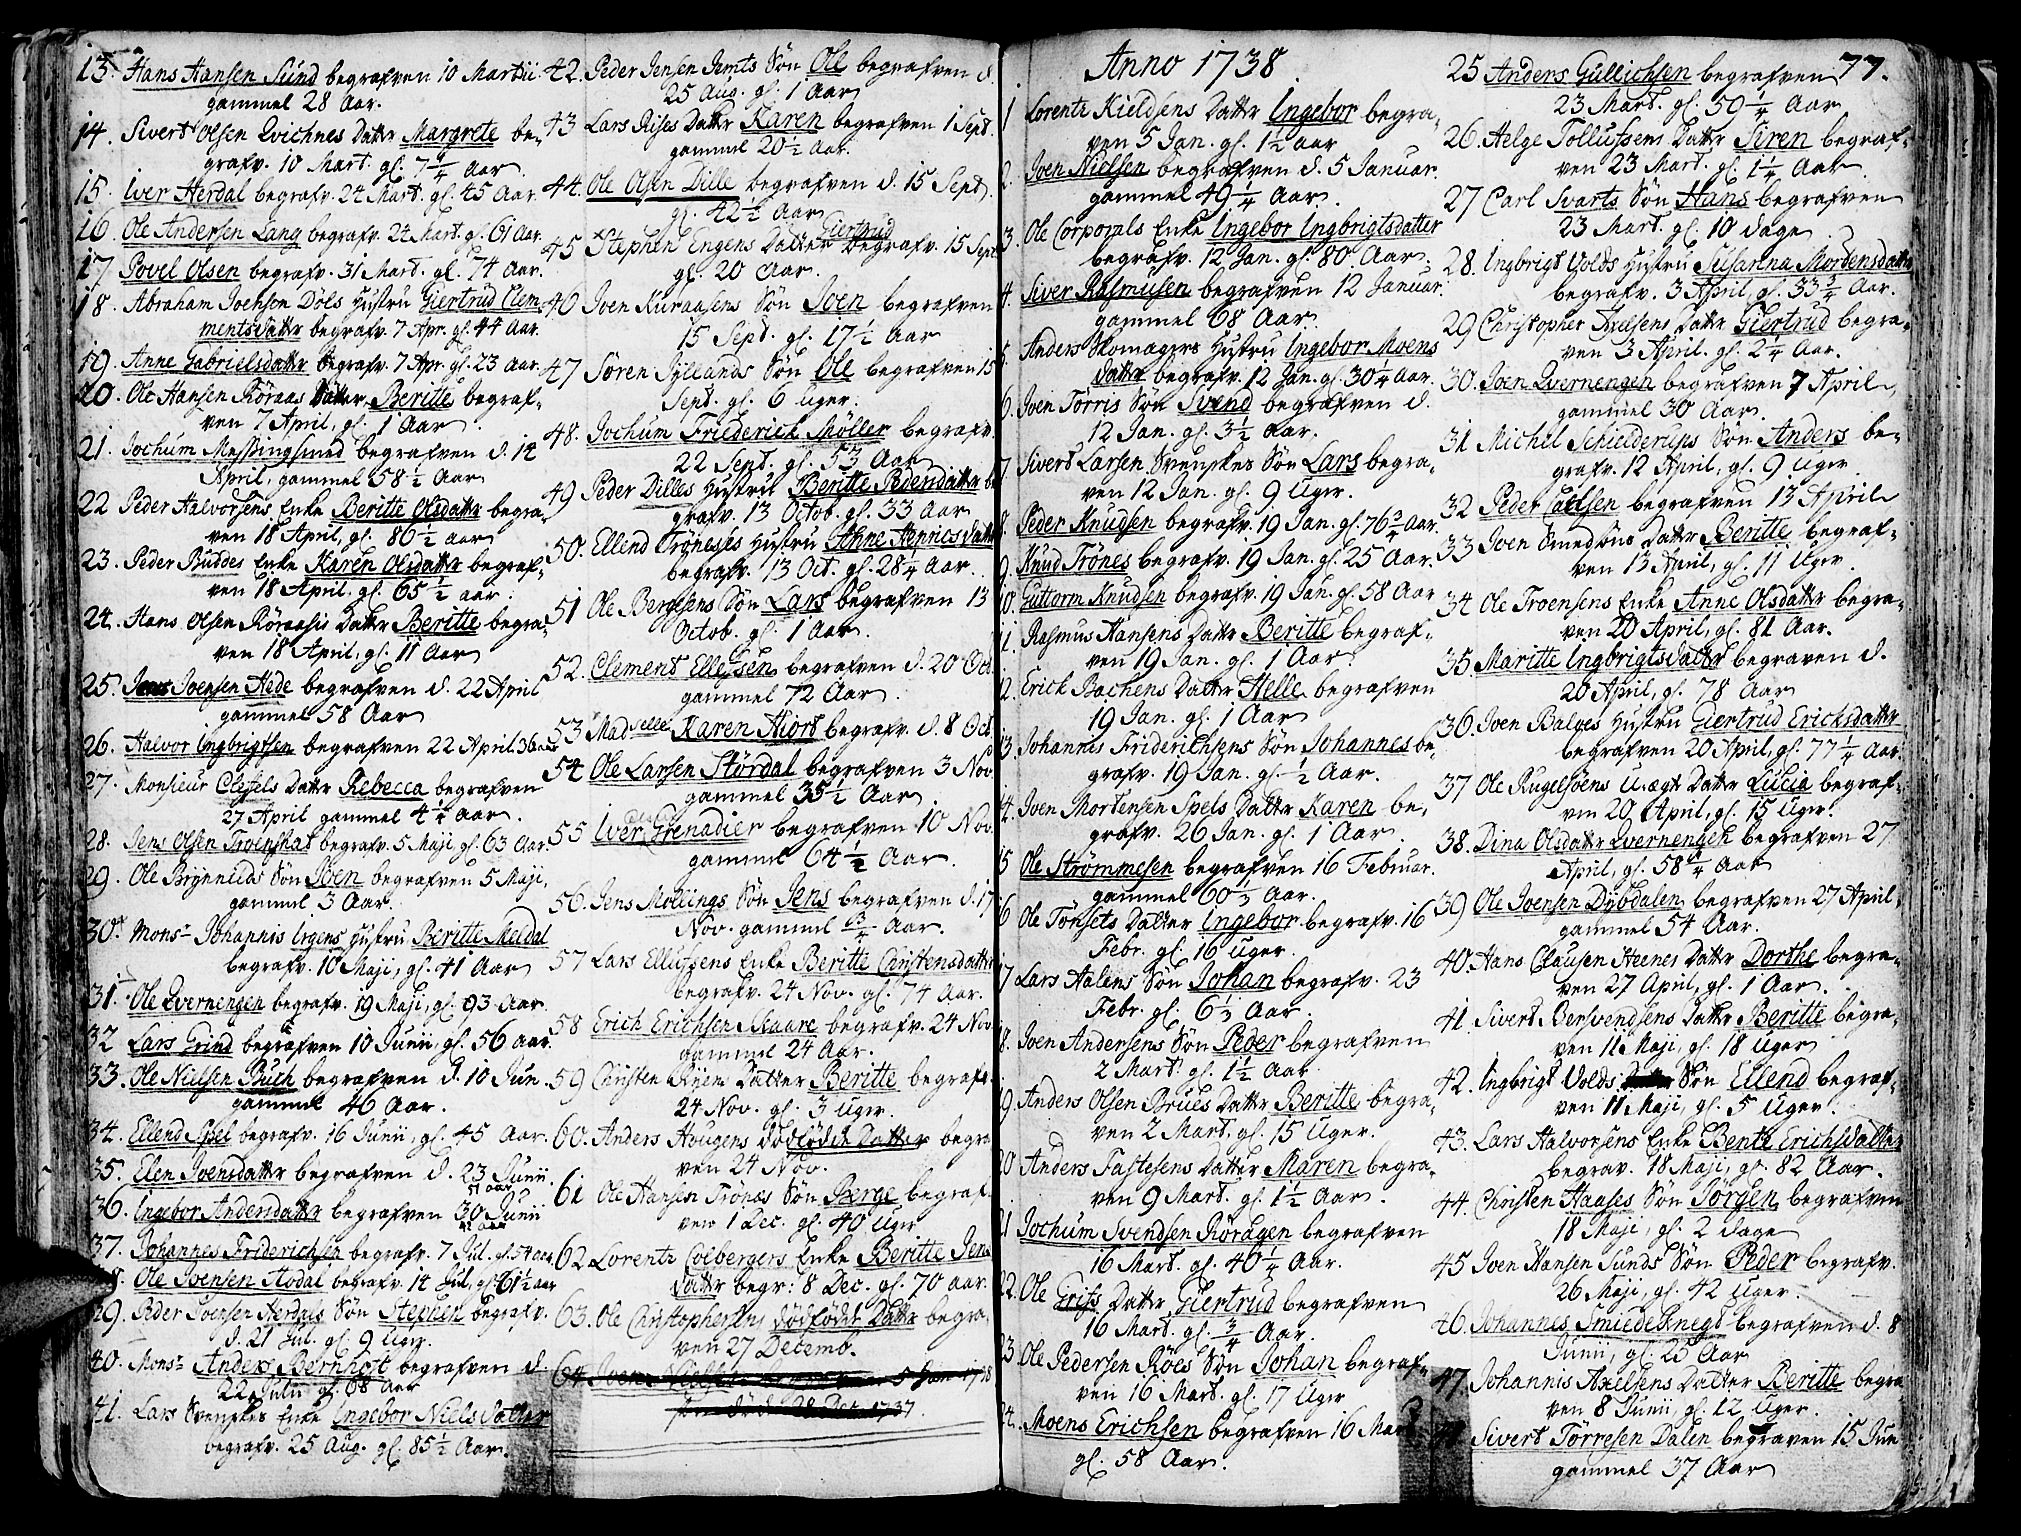 13. Hans Hansen Sund begrafven 10 Martii
gammel 28 Aar.
14. Sivert Olsen Qvichnes Datter Margrete be-
grafv. 10 Mart. gl. 7 1/4 Aar
15. Iver Herdal begrafv. 24 Mart. gl. 45 Aar
16. Ole Andersen Lang begrafv. 24 Mart. gl. 61 Aar.
17. Povel Olsen begrafv. 31 Mart. gl. 74 Aar.
18. Abraham Joensen Döls Hustru Giertrud Clem-
mentsdattr begrafv. 7 Apr. gl. 44 Aar.
19. Anne Gabrielsdattr begrafv. 7 Apr. gl. 23 Aar.
20. Ole Hansen Röraas Datter Beritte begraf-
ven 7 April, gl. 1 Aar.
21. Jochum Messingsmed begrafven d. 12
April, gammel 58 1/2 Aar
22 Peder Halvorsens Enke Beritte Olsdattr begra-
ven 18 April, gl. 86 1/2 aar
23. Peder Buddes Enke Karen Olsdattr begraf-
ven 18 April. gl. 65 1/2 aar.
24. Hans Olsen Röraasis Dattr Beritte begra-
ven 18 April, gl. 11 Aar
25. Joensen Hede begrafven d. 22 April
gammel 58 Aar
26. Halvor Ingbrigtsen begrafven 22 April 36 aar
27. Monsieur Datter Rebecca begrafven
27 April gammel 4 1/4 Aar.
28. Jens Olsen Troenskat begrafv. 5 Maji gl. 63 Aar.
29. Ole Brynnilds Sön Joen begrafven 5 Maji,
gammel 3 Aar.
30. Monsr Johannis Irgens Hustru Beritte Meldal
begrafv. 10 Maji, gl. 41 Aar
31. Ole Qvernengen begrafv. 19 Maji, gl. 93 Aar.
32 Lars Grind begrafven 10 Junii, gl. 56 aar.
33. Ole Nielsen Buch begrafven d. 10 Jun.
gammel 46 Aar.
34. Ellend Spel begrafv. 16 Junii, gl. 45 Aar
35. Elen Joensdattr begrafven d. 23 Junii.
51 aar
36. Ingebor Andersdattr begrafven 30 Junii
37. Johannes Friderichsen begrafv. 7 Jul. gl. 54 aar
38. Ole Joensen Aodal begrafv. 14 Jul, gl. 61 1/2 aar
39. Peder Joensen Herdals Sön Stephen begrafv.
d. 21 Jul. gl. 9 Uger.
40. Monsr Anders Bernhoft begrafven d.
22 Julii gl. 68 Aar
41. Lars Svenskes Enke Ingebor Niels Datter
begrafv. 25 Aug. gl. 85 1/2 Aar.
42. Peder Jensen Jemts Sön Ole begrafven d.
25 Aug. gl. 1 Aar
43 Lars Rises Dattr Karen begrafven 1 Sept.
gammel 20 1/2 Aar.
44. Ole Olsen Dille begrafven d. 15 Sept.
gl. 42 1/2 Aar
Giertrud
45 Stephen Engens Datter begrafv. 15 Sept
gl. 20 Aar.
46 Joen Kuraasens Sön Joen begrafven
15 Sept. gl. 17 1/2 Aar
47 Sören Jyllands Sön Ole begrafven 15
Sept. gl. 6 Uger.
48. Jochum Friederich Möller begrafv.
22 Sept. gl. 53 Aar
49 Peder Dilles Hustru Beritte Pedersdattr be
grafv. 13 Octob. gl. 33 Aar
50. Ellend Tröneses Hustru Anne datt
begrafv. 13 Oct. gl. 28 1/4 Aar.
51 Ole Bergesens Sön Lars begrafven 13
Octob. gl. 1 Aar.
52. Clement Ellefsen begrafven d. 20 Oct
gammel 72 Aar.
53 Madselle Karen Hiort begrafv. d. 8 Oct
54 Ole Larsen Stördal begrafven 3 Nov.
gammel 35 1/2 Aar.
55 Iver Grenadier begrafven 10 Nov.
gammel 64 1/2 Aar.
56. Jens Mölings Sön Jens begrafven d. 17
Nov. gammel 3/4 Aar.
57 Lars Ellufsens Enke Beritte Christensdattr
begrafv. 24 Nov. gl. 74 Aar.
58 Erich Erichsen Skaare begrafv. 24 Nov
gammel 24 Aar.
59 Christen Ryens Datter Beritte begraf-
24 Nov. gl. 3 Uger.
60. Anders Hougens dödfödt Datter begra-
ven 24 Nov.
61 Ole Hansen Trönes Sön Berge begraf-
ven 1 Dec. gl. 40 Uger
62. Lorentz Colbergers Enke Beritte Jens
dattr begr: 8 Dec. gl. 70 aar.
63. Ole Christophersens dödfödt Dattr begra-
ven 27 Decemb.
64 Joen 5 Jan 1738
1737.
Anno 1738.
77.
1 Lorentz Kieldsens Dattr Ingebor begra-
ven 5 Jan. gl. 1 1/2 aar
2. Joen Nielsen begrafven d. 5 Januar.
gammel 49 1/4 Aar.
3. Ole Corporals Enke Ingebor Ingbrigtsdatter
begrafv. 12 Jan. gl. 80 Aar.
4. Siver Rasmusen begrafven 12 Januar.
gammel 68 Aar.
5. Anders Skomagers Hustru Ingebor Moens
dattr begrafv. 12 Jan. gl. 30 1/4 Aar.
6. Joen Törris Sön Svend begrafven d.
12 Jan. gl. 3 1/2 Aar.
7. Sivert Larsen Svenskes Sön Lars begra-
ven 12 Jan. gl. 9 Uger.
8. Peder Knudsen begrafv. 19 Jan. gl. 76 3/4 Aar.
9. Knud Trönes begrafv. 19 Jan. gl. 25 Aar.
10. Guttorm Knudsen begrafv. 19 Jan. gl. 58 Aar
11. Rasmus Hansens Dattr Beritte begraf-
ven 19 Jan. gl. 1 Aar.
12. Erick Bachens Datter Helle begrafven
19 Jan. gl. 1 Aar
13. Johannis Friderichsens Sön Johannes be-
grafv. 19 Jan. gl. 1/2 Aar.
14. Joen Mortensen Spels Datter Karen be-
grafv. 26 Jan. gl. 1 Aar.
15 Ole Strömmesen begrafven 16 Februar.
gammel 60 1/3 Aar.
16 Ole Tönsets Datter Ingebor begrafv. 16
Febr. gl. 16 Uger.
17 Lars Aalens Sön Johan begrafv. 23
Febr. gl. 6 1/3 Aar.
18. Joen Andersens Sön Peder begrafven
2 Mart. gl. 1 1/2 Aar.
19. Anders Olsen Brues Datter Beritte begra-
ven 2 Mart. gl. 15 Uger.
20 Anders Fastesens Datter Maren begra-
ven 9 Mart. gl. 1 1/2 Aar.
21 Jochum Svendsen Röragen begrafven
16 Mart. gl. 40 1/4 Aar.
22. Ole Grifs Datter Giertrud begrafven
16 Mart. gl. 3/4 Aar.
23. Ole Pedersen Röes Sön Johan begraf-
ven 16 Mart. gl. 17 Uger
24. Moens Erichsen begrafven 16 Mart.
gl. 58 Aar.
25 Anders Gullichsen begrafven
23 Mart. gl. 50 1/4 Aar
26. Helge Tollufsens Datter Siren begraf-
ven 23 Mart. gl. 1 1/4 Aar.
27 Carl Svarts Sön Hans begrafven
23 Mart. gl. 10 dage.
28. Ingbrigt Volds Hustru Susanna Mordensdattr
begrafv. 3 April, gl. 33 3/4 Aar.
29 Christopher Axelsens Dattr Giertrud begra-
ven 3 April. gl. 2 1/4 Aar.
30. Joen Qvernengen begrafven 7 April,
gammel 30 Aar.
31 Michel Schielderups Sön Anders be-
grafv. 12 April, gl. 9 Uger.
32 Peder begrafven 13 April
33 Joen Smedsöns Dattr Beritte begraf-
ven 13 April, gl. 11 Uger.
34 Ole Troensens Enke Anne Olsdattr begra-
ven 20 April, gl. 81 Aar.
35. Maritte Ingbrigtsdattr begraven d.
20 April, gl. 78 Aar
36. Joen Balges Hustru Giertrud Ericksdattr
begrafven 20 April, gl. 77 1/4 Aar.
37 Ole Rugelsöens Uægt Datter Lucia begraf-
ven 20 April, gl. 15 Uger.
38. Dina Olsdattr Qvernengen begrafven 27
April, gl. 58 1/4 Aar
39 Ole Joensen Dybdalen begrafven 27 April.
gammel 54 Aar.
40. Hans Clausen Heenes Dattr Dorthe begra-
ven 27 April, gl. 1 Aar.
41. Sivert Bersvendsens Dattr Beritte begra-
ven 11 Maji, gl. 18 Uger
42. Ingbrigt Volds Sön Ellend begraf-
ven 11 Maji, gl. 5 Uger.
43. Lars Halvorsens Enke Bente Erichsdatter
begrav. 18 Maji, gl. 82 Aar.
44. Christen Haases Sön Jörgen begrafven
18 Maji, gl. 2 dage
45 Joen Hansen Sunds Sön Peder begrafv.
26 Maji, gl. 42 Uger.
46. Johannes Smiedeknegt begrafven d. 8
Junii, gl. 25 Aar
47 Johannis Axelsens Datter Beritte begra
ven 8 Junii, gl. 12 Uger.
Sivert Törresen Dalen begraven 15 Jun
gammel 37 Aar